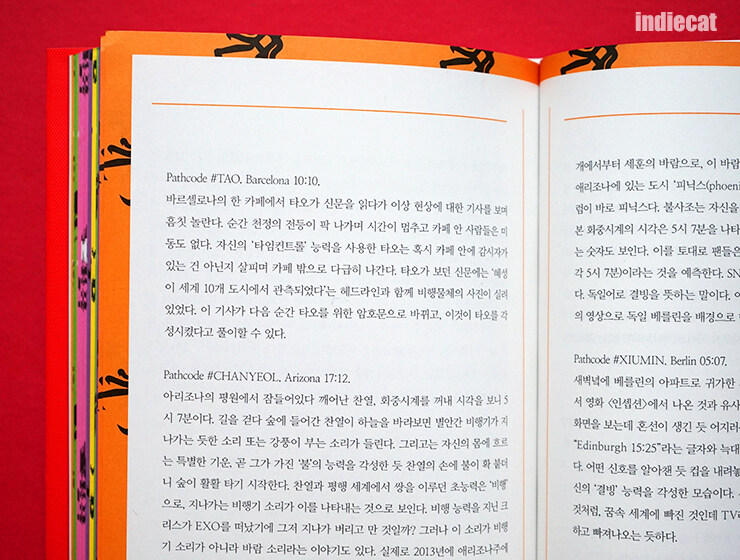 indiecat
Pathcode #TAO. Barcelona 10:10.
바르셀로나의 한 카페에서 타오가 신문을 읽다가 이상 현상에 대한 기사를 보며
흠칫 놀란다. 순간 천정의 전등이 팍 나가며 시간이 멈추고 카페 안 사람들은 미
동도 없다. 자신의 ‘타임컨트롤’ 능력을 사용한 타오는 혹시 카페 안에 감시자가
있는 건 아닌지 살피며 카페 밖으로 다급히 나간다. 타오가 보던 신문에는 ‘혜성
이 세계 10개 도시에서 관측되었다’는 헤드라인과 함께 비행물체의 사진이 실려
있었다. 이 기사가 다음 순간 타오를 위한 암호문으로 바뀌고, 이것이 타오를 각
성시켰다고 풀이할 수 있다.
Pathcode #CHANYEOL. Arizona 17:12.
아리조나의 평원에서 잠들어있다 깨어난 찬열, 회중시계를 꺼내 시각을 보니 5
시 7분이다. 길을 걷다 숲에 들어간 찬열이 하늘을 바라보면 별안간 비행기가 지
나가는 듯한 소리 또는 강풍이 부는 소리가 들린다. 그리고는 자신의 몸에 흐르
는 특별한 기운, 곧 그가 가진 ‘불’의 능력을 각성한 듯 찬열의 손에 불이 확 붙더
니 숲이 활활 타기 시작한다. 찬열과 평행 세계에서 쌍을 이루던 초능력은 ‘비행’
으로, 지나가는 비행기 소리가 이를 나타내는 것으로 보인다. 비행 능력을 지닌 크
리스가 EXO를 떠났기에 그저 지나가 버리고 만 것일까? 그러나 이 소리가 비행
기 소리가 아니라 바람 소리라는 이야기도 있다. 실제로 2013년에 애리조나주에
개에서부터 세훈의 바람으로, 이 바람
애리조나에 있는 도시 ‘피닉스(phoeni
럼이 바로 피닉스다. 불사조는 자신을
본 회중시계의 시각은 5시 7분을 나타
는 숫자도 보인다. 이를 토대로 팬들은
각 5시 7분)이라는 것을 예측한다. SN
다. 독일어로 결빙을 뜻하는 말이다. 이
의 영상으로 독일 베를린을 배경으로
Pathcode #XIUMIN. Berlin 05:07.
새벽녘에 베를린의 아파트로 귀가한
서 영화 <인셉션>에서 나온 것과 유사
화면을 보는데 혼선이 생긴 듯 어지러
“Edinburgh 15:25”라는 글자와 늑대
다. 어떤 신호를 알아챈 듯 컵을 내려놓
신의 ‘결빙’ 능력을 각성한 모습이다.
것처럼, 꿈속 세계에 빠진 것인데 TV
하고 빠져나오는 듯하다.